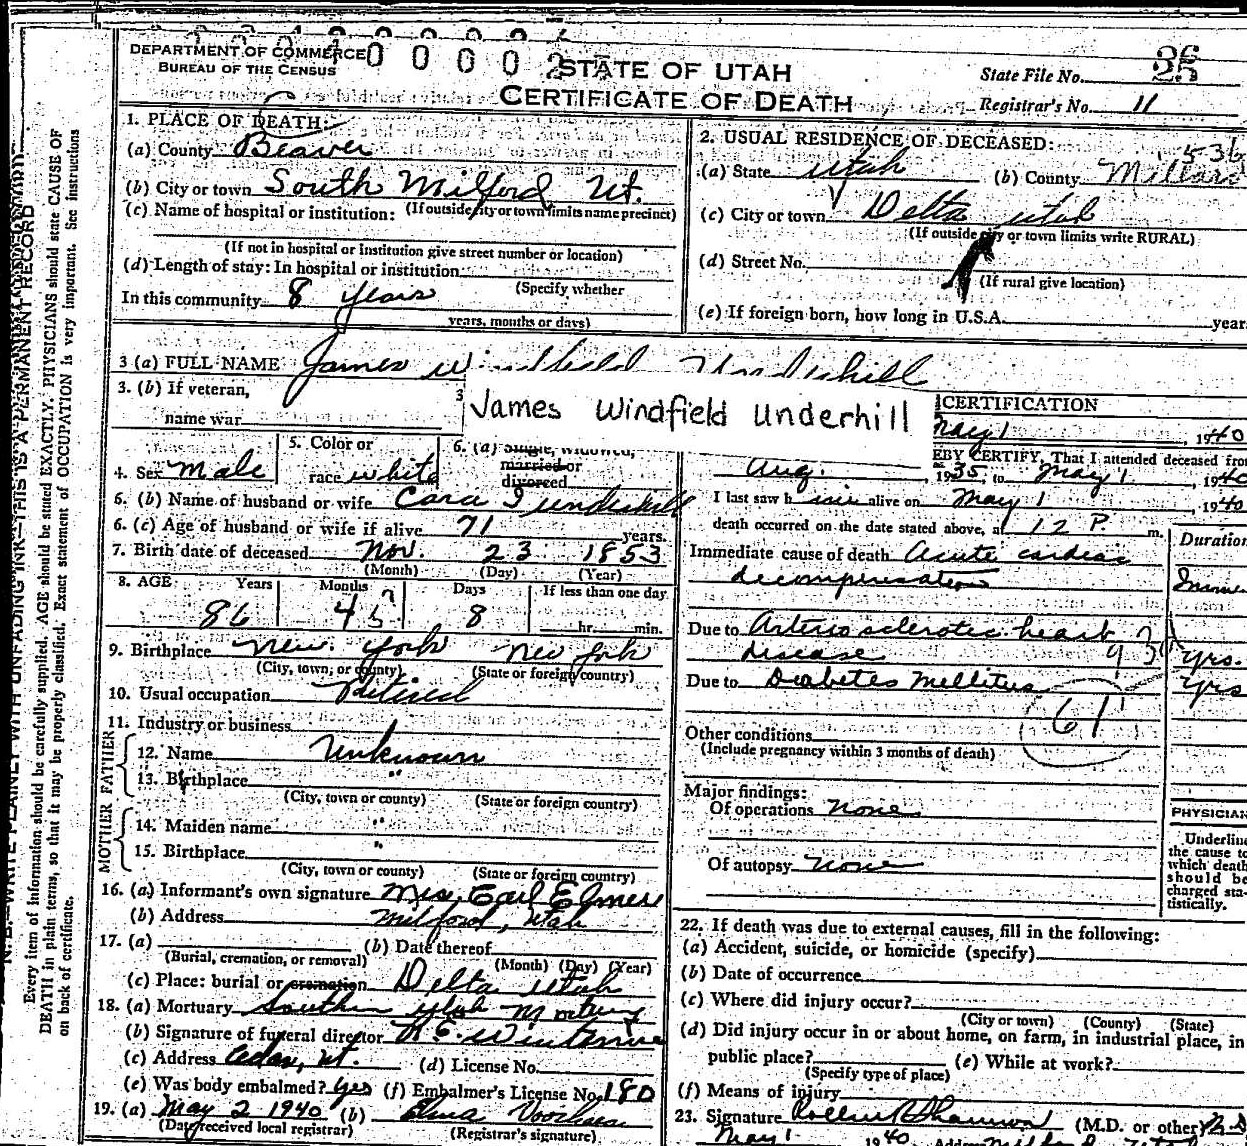 DEPARTMENT OF COMMERCE
BUREAU OF THE CENSUS
0 0 0 0 2
STATE OF UTAH
CERTIFICATE OF DEATH
State File No. 26
Registrar's No. 11
1. PLACE OF DEATH:
(a) County Beaver
(b) City or town South Milford Ut.
(c) Name of hospital or institution: (If outside city or town limits name precinct)
(If not in hospital or institution give street number or location)
(d) Length of stay: In hospital or institution
(Specify whether
In this community 8 years
years, months or days)
2. USUAL RESIDENCE OF DECEASED:
536
(a) State Utah (b) County Millard
(c) City or town Delta Utah
(If outside city or town limits write RURAL)
(d) Street No.
(If rural give location)
(e) If foreign born, how long in U.S.A. year
3 (a) FULL NAME James Windfield Underhill
James Windfield Underhill
3. (b) If veteran,
name war
3
4. Sex Male
5. Color or
race white
6. (a) Single, widowed,
married or
divorced
6. (b) Name of husband or wife Cora I underhill
6. (c) Age of husband or wife if alive 71 years.
7. Birth date of deceased Nov. 23 1853
(Month) (Day) (Year)
8. AGE: Years Months Days If less than one day
86 4 5 8 hr. min.
9. Birthplace New York New York
(City, town, or county) (State or foreign country)
10. Usual occupation Retired
11. Industry or business
FATHER
12. Name Unknown
13. Birthplace "
(City, town or county) (State or foreign country)
MOTHER
14. Maiden name "
15. Birthplace "
(City, town or county) (State or foreign country)
16. (a) Informant's own signature Mrs. Earl Elmer
(b) Address Milford, Utah
17. (a) (b) Date thereof
(Burial, cremation, or removal) (Month) (Day) (Year)
(c) Place: burial or cremation Delta Utah
18. (a) Mortuary Southern Utah Mortuary
(b) Signature of funeral director
(c) Address Cedar, Ut. (d) License No.
(e) Was body embalmed? Yes (f) Embalmer's License No. 180
19. (a) May 2 1940 (b)
(Date received local registrar) (Registrar's signature)
CERTIFICATION
May 1, 1940
EBY CERTIFY, That I attended deceased from
Aug. 1935, to May 1, 1940
I last saw him alive on May 1, 1940
death occurred on the date stated above, at 12 P. m.
Duration
Immediate cause of death Acute cardiac
decompensation Imme-
Due to Arterio sclerotic heart
disease yrs.
93
Due to Diabetes Mellitus yrs
61
Other conditions
(Include pregnancy within 3 months of death)
Major findings:
Of operations none
Of autopsy none
PHYSICIAN
Underline
the cause to
which death
should be
charged sta-
tistically.
22. If death was due to external causes, fill in the following:
(a) Accident, suicide, or homicide (specify)
(b) Date of occurrence
(c) Where did injury occur?
(City or town) (County) (State)
(d) Did injury occur in or about home, on farm, in industrial place, in
public place? (e) While at work?
(Specify type of place)
(f) Means of injury
23. Signature (M.D. or other)
May 1 1940
N. B.—WRITE PLAINLY WITH UNFADING INK—THIS IS A PERMANENT RECORD
Every item of information should be carefully supplied. AGE should be stated EXACTLY. PHYSICIANS should state CAUSE OF
DEATH in plain terms, so that it may be properly classified. Exact statement of OCCUPATION is very important. See instructions
on back of certificate.